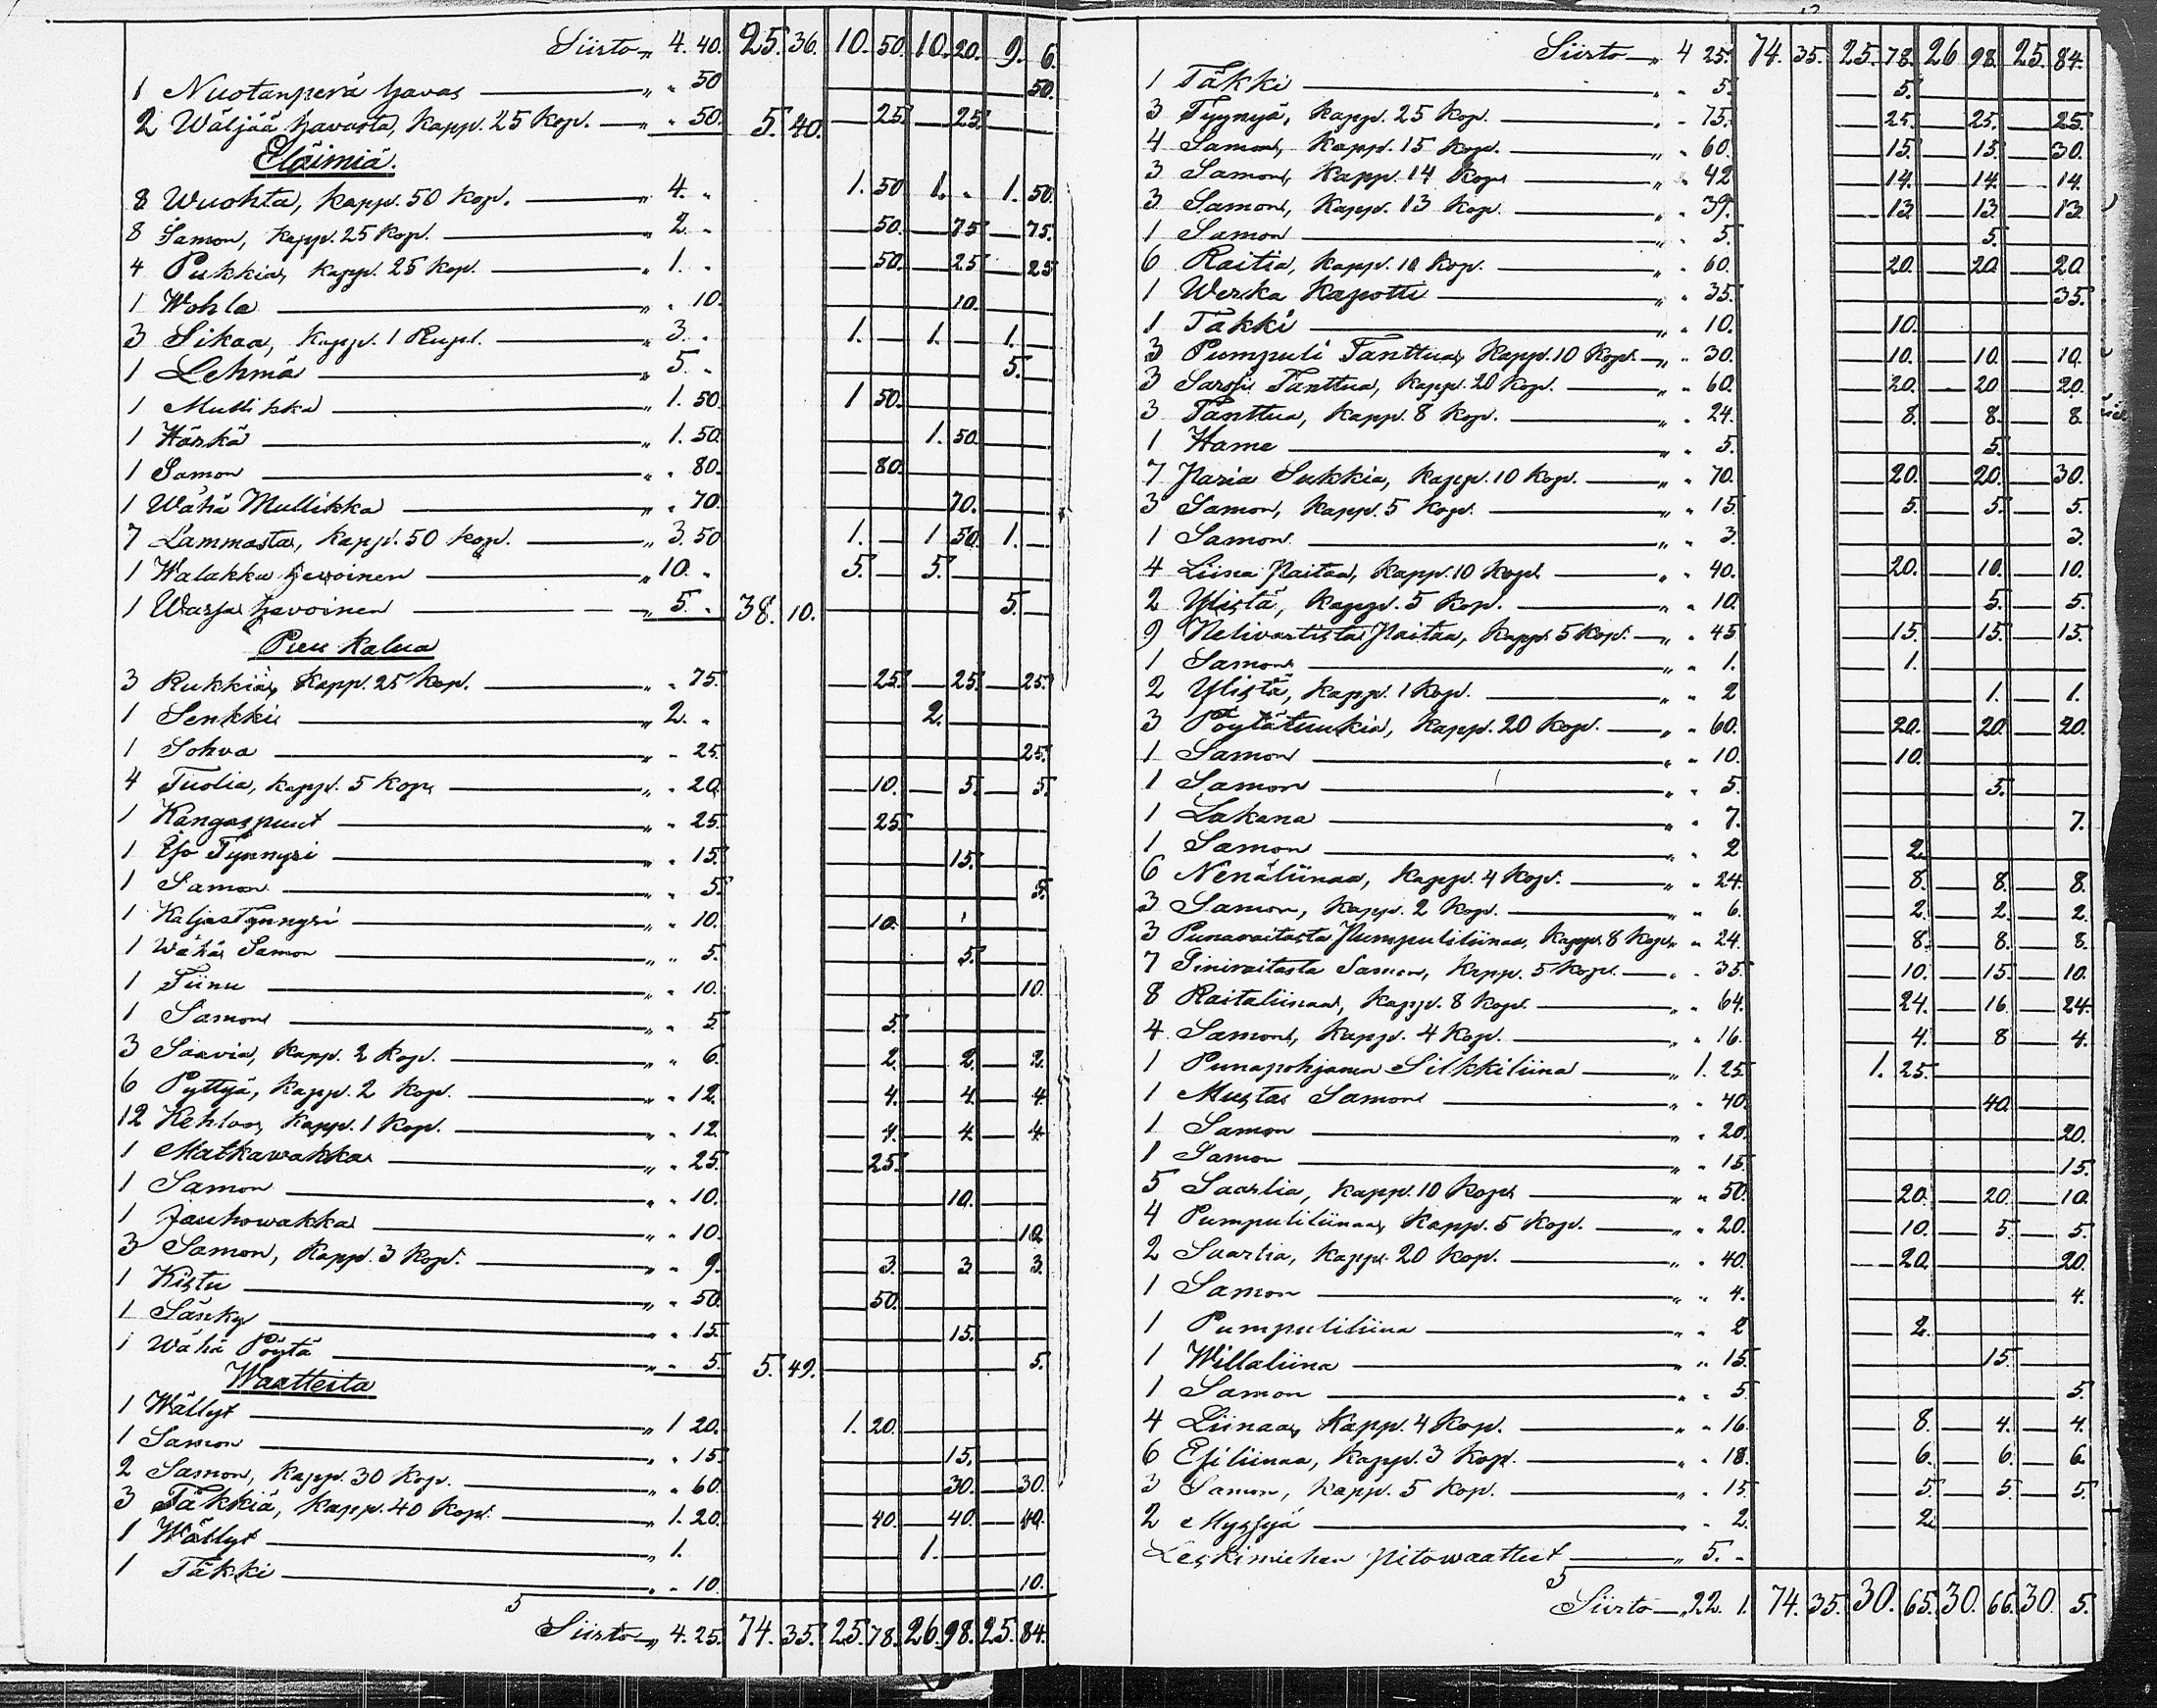 Siirto „ 4. 40. 25. 36. 10. 50. 10. 20. 9. 6.
1 Nuotanperä havas „ „ 50 50.
2 Wäljää havasta, Kapp. 25 Kop. „ „ 50. 5. 40. 25. 25.
Eläimiä.
8 Wuohta, Kapp. 50 Kop. „ 4. „ 1. 50 1. „ 1. 50.
8 Samon, Kapp. 25 Kop. „ 2. „ 50. 75 75.
4 Pukkia, Kapp. 25 Kop. „ 1. „ 50. 25 25
1 Wohla „ „ 10. 10.
3 Sikaa, Kapp. 1 Rupl. „ 3. „ 1. 1. 1.
1 Lehmä „ 5. „ 5.
1 Mullikka „ 1. 50. 1 50.
1 Härkä „ 1. 50. 1. 50.
1 Samon „ „ 80. 80.
1 Wähä Mullikka „ „ 70. 70.
7 Lammasta, Kapp. 50 Kop. „ 3. 50 1. 1 50. 1.
1 Walakka hevoinen „ 10. „ 5. 5.
1 Warsa hevoinen „ 5. „ 38. 10. 5.
Puu Kalua
3 Rukkia, Kapp. 25 Kop. „ „ 75. 25. 25. 25.
1 Senkki „ 2. „ 2.
1 Sohva „ „ 25. 25.
4 Tuolia, Kapp. 5 Kop. „ „ 20. 10. 5. 5.
1 Kangaspuut „ „ 25. 25.
1 Tynnyri „ „ 15. 15.
1 Samon „ „ 5. 5.
1 KaljasTynnyri „ „ 10. 10.
1 Wähä Samon „ „ 5. 5.
1 Tiinu „ „ 10. 10.
1 Samon „ „ 5 5.
3 Saavia, Kapp. 2 Kop. „ „ 6. 2. 2. 2.
6 Pyttyä, Kapp. 2 Kop. „ „ 12. 4. 4. 4
12 Kehloo, Kapp. 1 Kop. „ „ 12. 4. 4. 4
1 Matkawakka „ „ 25. 25.
1 Samon „ „ 10. 10.
1 Jauhowakka „ „ 10. 10.
3 Samon, Kapp. 3 Kop. „ „ 9. 3. 3 3.
1 Kistu „ „ 50. 50.
1 Sänky „ „ 15. 15.
1 Wähä Pöytä „ „ 5. 5. 49. 5.
Waatteita
1 Wällyt „ 1 20. 1. 20.
1 Samon „ „ 15. 15.
2 Samon, Kapp. 30 Kop. „ „ 60. 30. 30.
3 Täkkiä, Kapp. 40 Kop. „ 1. 20. 40. 40. 40.
1 Wällyt „ 1. 1.
1 Täkki „ „ 10. 10.
5
Siirto „ 4. 25. 74. 35. 25. 78. 26. 98. 25. 84.
Siirto „ 4 25. 74. 35. 25. 78. 26 98. 25. 84.
1 Täkki „ „ 5. 5.
3 Tyynyä, Kapp. 25 Kop. „ „ 75. 25. 25. 25.
4 Samon, Kapp. 15 Kop. „ „ 60. 15. 15. 30.
3 Samon, Kapp. 14 Kop. „ „ 42 14. 14. 14.
3 Samon, Kapp. 13 Kop. „ „ 39. 13 13 13
1 Samon „ „ 5. 5.
6 Raitia, Kapp. 10 Kop. „ „ 60. 20. 20 20
1 Werka Kapotti „ „ 35. 35.
1 Täkki „ „ 10. 10.
3 Pumpuli Tanttua, Kapp. 10 Kop. „ „ 30. 10. 10. 10.
3 Tanttua, Kapp. 20 Kop. „ „ 60. 20. 20 20.
3 Tanttua, Kapp. 8 Kop. „ „ 24. 8. 8. 8.
1 Hame „ „ 5. 5.
7 Paria Sukkia, Kapp. 10 Kop. „ „ 70. 20. 20. 30.
3 Samon, Kapp. 5 Kop. „ „ 15. 5. 5. 5.
1 Samon „ „ 3. 3.
4 Liina Paitaa, Kapp. 10 Kop. „ „ 40. 20. 10. 10.
2 Ylistä, Kapp. 5 Kop. „ „ 10. 5. 5.
9 Nelivartista Paitaa, Kapp. 5 Kop. „ „ 45 15. 15. 15.
1 Samon „ „ 1. 1.
2 Ylistä, Kapp. 1 Kop. „ „ 2 1. 1.
3 Pöytätuukia, Kapp. 20 Kop. „ „ 60. 20. 20. 20.
1 Samon „ „ 10. 10.
1 Samon „ „ 5. 5.
1 Lakana „ „ 7. 7.
1 Samon „ „ 2 2.
6 Nenäliinaa, Kapp. 4 Kop. „ „ 24. 8. 8. 8.
3 Samon, Kapp. 2 Kop. „ „ 6. 2. 2. 2.
3 Punaraitasta Pumpuliliinaa, Kapp. 8 Kop. „ „ 24. 8. 8. 8.
7 Siniraitasta Samon, Kapp. 5 Kop. „ „ 35. 10. 15. 10.
8 Raitaliinaa, Kapp. 8 Kop. „ „ 64. 24. 16. 24.
4 Samon, Kapp. 4 Kop. „ „ 16. 4. 8 4.
1 Punapohjanen Silkkiliina „ 1. 25. 1. 25.
1 Musta Samon „ „ 40. 40.
1 Samon „ „ 20. 20.
1 Samon „ „ 15. 15.
5 Saarlia, Kapp. 10 Kop. „ „ 50. 20. 20. 10.
4 Pumpuliliinaa, Kapp. 5 Kop. „ „ 20. 10. 5. 5.
2 Saarlia, Kapp. 20 Kop. „ „ 40. 20. 20.
1 Samon „ „ 4. 4.
1 Pumpuliliina „ „ 2 2.
1 Willaliina „ „ 15. 15.
1 Samon „ „ 5 5.
4 Liinaa, Kapp. 4 Kop. „ „ 16. 8. 4. 4.
6 Esiliinaa, Kapp. 3 Kop. „ „ 18. 6. 6. 6.
3 Samon, Kapp. 5 Kop. „ „ 15. 5. 5. 5.
2 Myssyä „ 2. 2.
Leskimiehen Pitowaatteet „ 5. „
5
Siirto „ 22. 1. 74. 35. 30. 65. 30. 66. 30. 5.